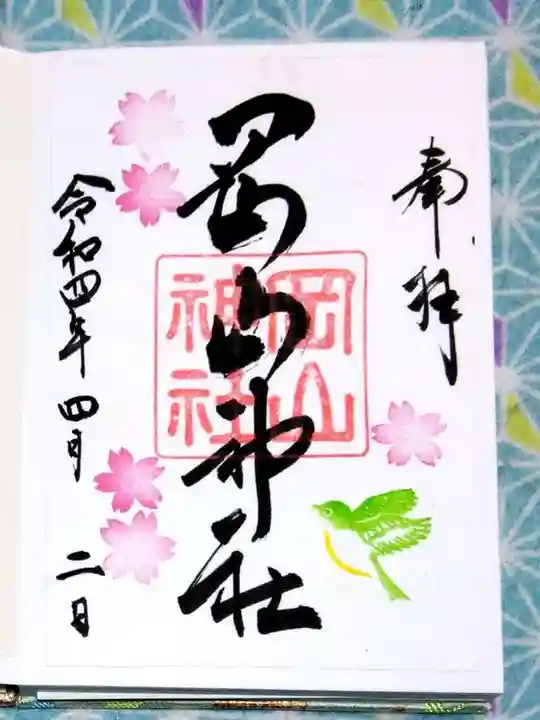 奉拝
岡山神社
岡山
神社
令和四年四月二日